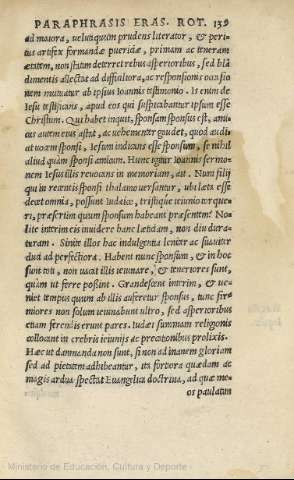 PARAPHRASIS ERAS. ROT. 139
ad maiora, velut quum prudens literator, & peri-
tus artifex formandæ pueritiæ, primam ac teneram
ætatem, non statim deterret rebus asperioribus, sed blā
dimentis allectat ad difficiliora, ac responsionis occasio
nem mutuatur ab ipsius Ioannis testimonio. Is enim de
Iesu testificans, apud eos qui suspicabantur ipsum esse
Christum. Qui habet inquit, sponsam sponsus est, ami-
cus autem eius astat, ac vehementer gaudet, quod audi
at vocem sponsi, Iesum indicans esse sponsum, se nihil
aliud quàm sponsi amicum. Hunc igitur Ioannis sermo-
nem Iesus illis revocans in memoriam, ait. Nunc filij
qui in recentis sponsi thalamo versantur, ubi læta esse
decet omnia, possunt Iudaice, tristique ieiunio torque-
ri, præsertim quum sponsum habeant præsentem? No-
lite interim eis invidere hanc lætitiam, non diu dura-
turam. Sinite illos hac indulgentia leniter ac suaviter
duci ad perfectiora. Habent nunc sponsum, & in hoc
sunt toti, non vacat illis ieiunare, & teneriores sunt,
quàm ut ferre possint. Grandescent interim, & ve-
niet tempus quum ab illis auferetur sponsus, tunc fir-
miores non solum ieiunabunt ultro, sed asperioribus
etiam ferendis erunt pares. Iudæi summam religionis
collocant in crebris ieiunijs ac precationibus prolixis.
Hæc ut damnanda non sunt, si non ad inanem gloriam
sed ad pietatem adhibeantur, ita fortiora quædam ac
magis ardua spectat Euangelica doctrina, ad quæ me-
os paulatim
Ministerio de Educación, Cultura y Deporte